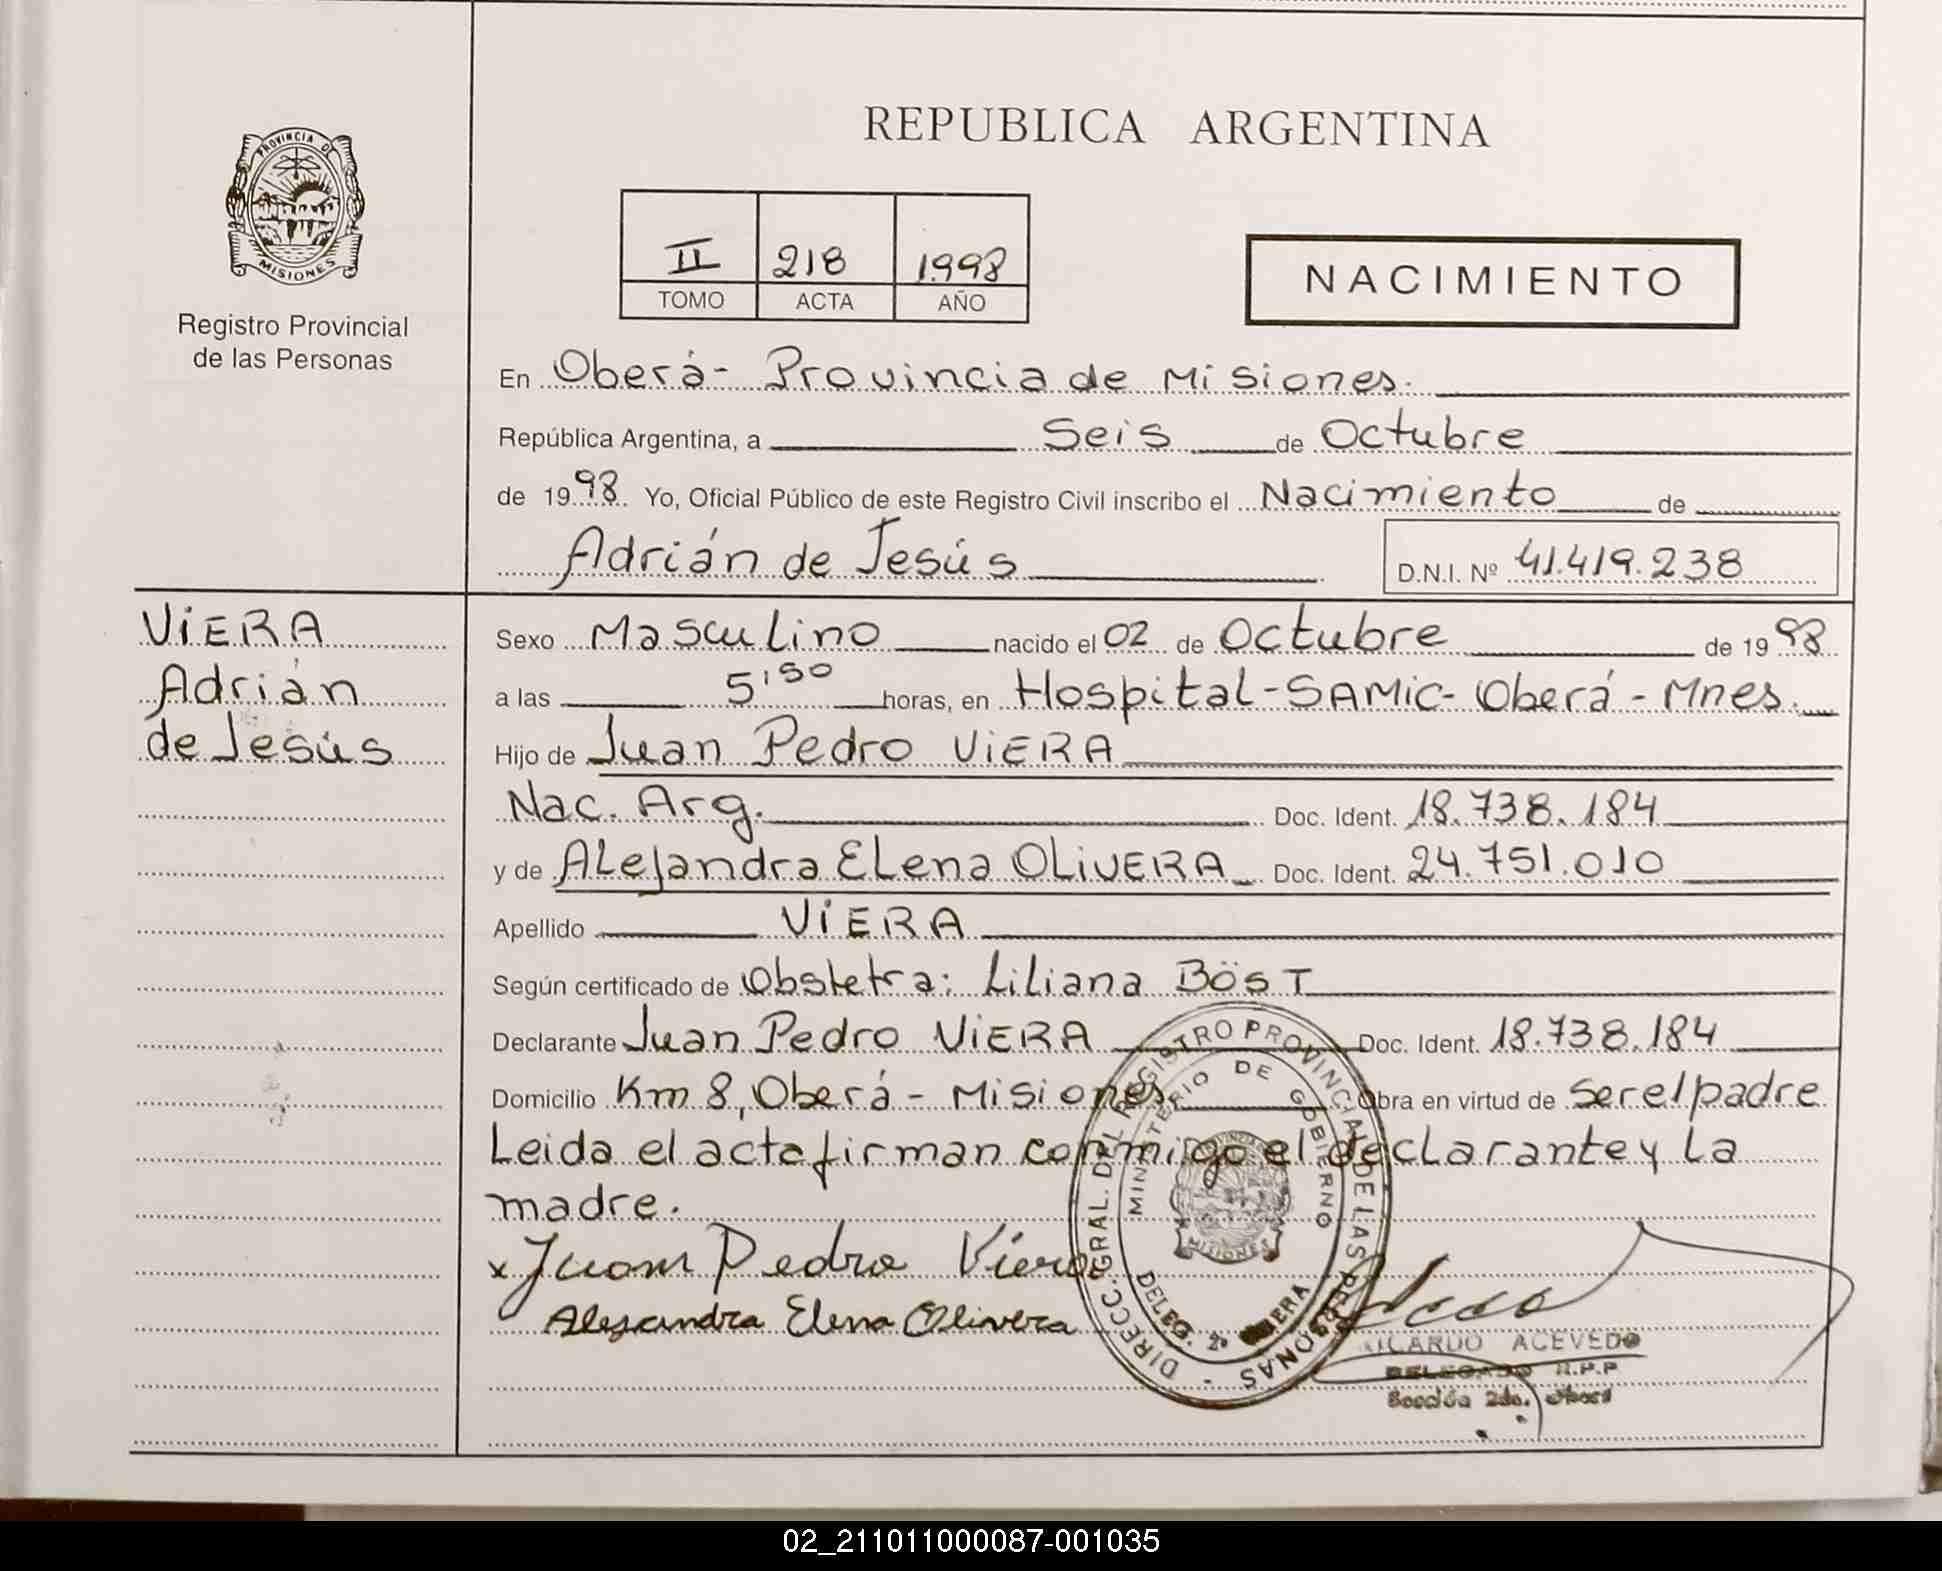 REPUBLICA ARGENTINA
PROVINCIA DE
MISIONES
Registro Provincial
de las Personas
II 218 1998
TOMO ACTA AÑO
NACIMIENTO
En Oberá - Provincia de Misiones.
República Argentina, a Seis de Octubre
de 1998 Yo, Oficial Público de este Registro Civil inscribo el Nacimiento de
Adrián de Jesús D.N.I. Nº 41.419.238
VIERA
Adrián
de Jesús
Sexo Masculino nacido el 02 de Octubre de 1998
a las 5'50 horas, en Hospital - SAMIC - Oberá - Mnes.
Hijo de Juan Pedro VIERA
Nac. Arg. Doc. Ident. 18.738.184
y de Alejandra Elena OLIVERA Doc. Ident. 24.751.010
Apellido VIERA
Según certificado de Obstetra: Liliana BÖST
Declarante Juan Pedro VIERA Doc. Ident. 18.738.184
Domicilio Km 8, Oberá - Misiones. Obra en virtud de ser el padre
Leida el acta firman conmigo el declarante y la
madre.
x Juan Pedro Viera
Alejandra Elena Olivera
DIRECC. GRAL. DEL REGISTRO PROVINCIAL DE LAS PERSONAS -
MINISTERIO DE GOBIERNO
MISIONES
DELEG. 2º
RICARDO ACEVEDO
DELEGADO R.P.P
Sección 2da. Oberá
02_211011000087-001035